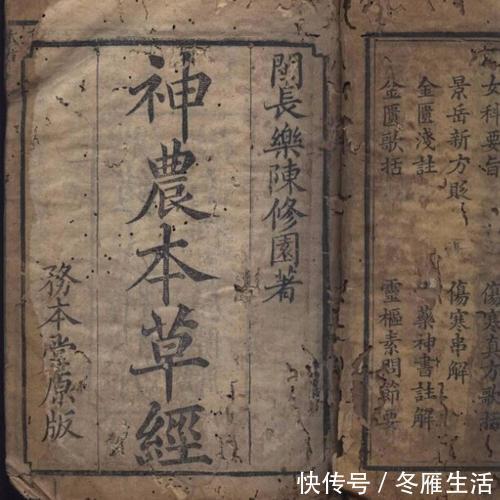 女科要旨
傷寒真方歌括
景岳新方貶
傷寒串解
金匱淺註
藥神書註解
金匱歌括
靈樞素問節要
閩長樂陳修園著
神農本草經
務本堂原版
快传号／冬雁生活